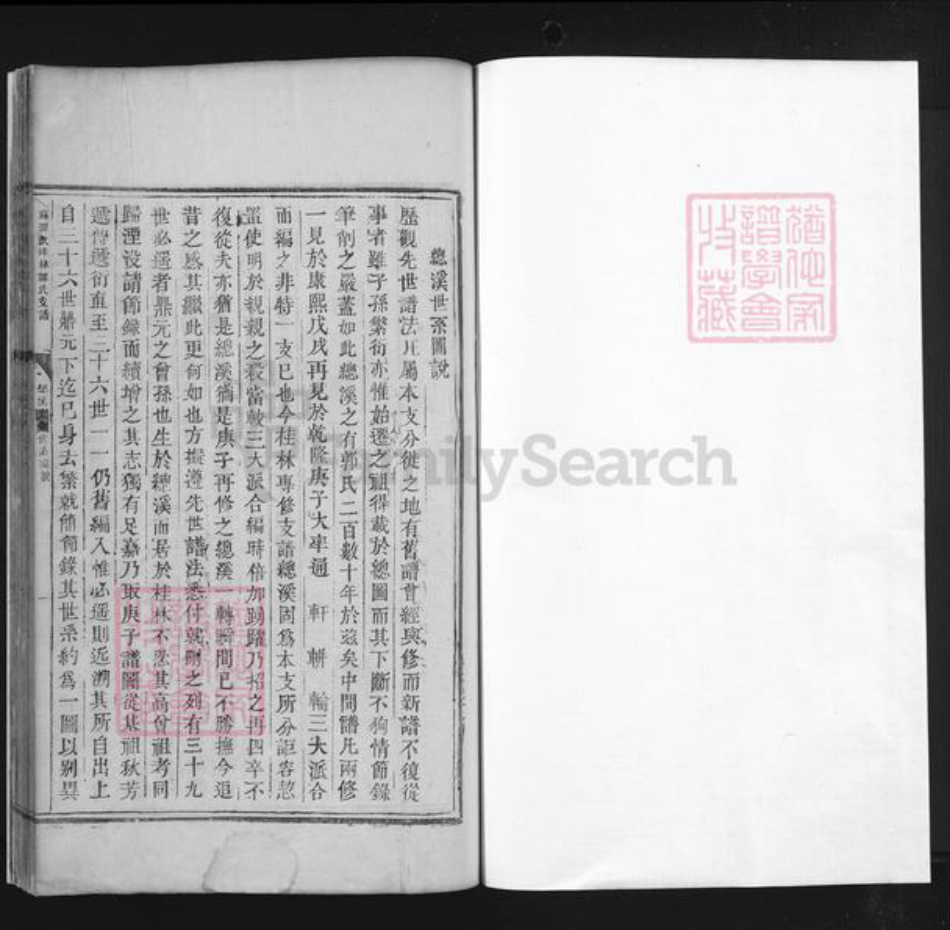 總溪世系圖說
歷觀先世譜法凡屬本支分徙之地有舊譜曾經與修而新譜不復從
事者雖子孫繁衍亦惟始遷之祖得載於總圖而其下斷不狥情節錄
筆削之嚴蓋如此總溪之有郭氏二百數十年於茲矣中間譜凡兩修
一見於康熙戊戌再見於乾隆庚子大率通 軒 輧 輪三大派合
而編之非特一支已也今桂林專修支譜總溪固為本支所分詎容恝
置使明於親親之殺當敘三大派合編時倍加踴躍乃招之再四卒不
復從夫亦猶是總溪猶是庚子再修之總溪一轉瞬間已不勝撫今追
昔之感其繼此更何如也方擬遵先世譜法悉付就刪之列有三十九
世必遥者鼎元之曾孫也生於總溪而居於桂林不忍其高曾祖考同
歸湮没請節錄而續增之其志獨有足嘉乃取庚子譜圖從基祖秋芳
遞傳遞衍直至二十六世一一仍舊編入惟必遥則近溯其所自出上
自三十六世鼎元下迄已身去繁就簡節錄其世系約為一圖以别異
郭氏支譜
FamilySearch
猶他家
譜學會
收藏